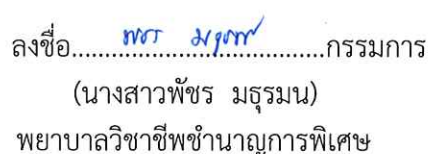 ลงชื่อ.......พชร มธุรมน.......กรรมการ
(นางสาวพัชร มธุรมน)
พยาบาลวิชาชีพชำนาญการพิเศษ